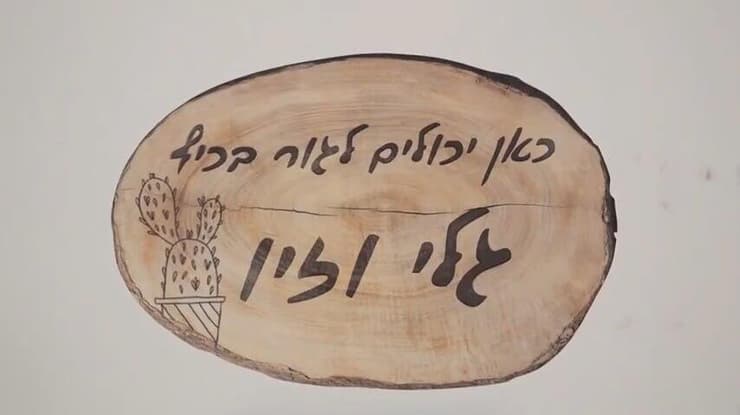 כאן יכולים לגור בכיף
גלי וזיו